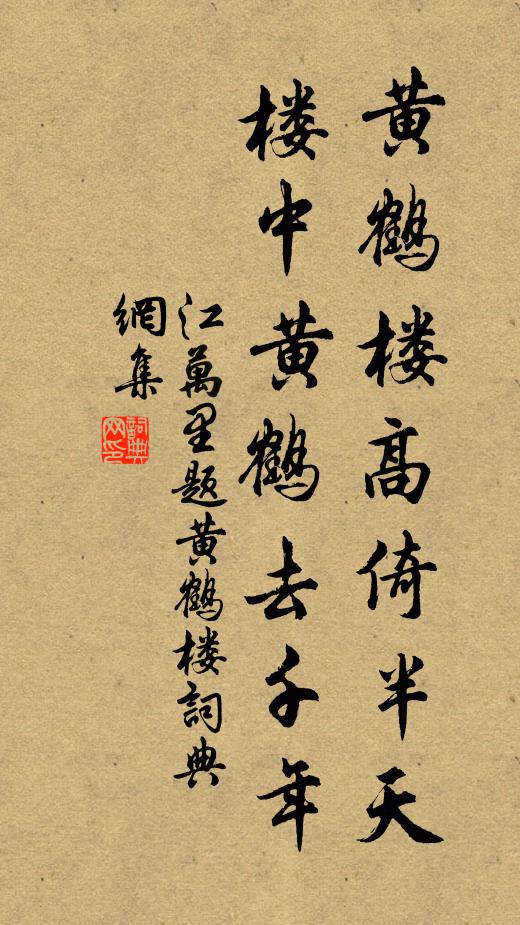 黄鶴楼高倚半天
楼中黄鶴去千年
江萬里題黄鶴楼詞典
網集
詞典
网印